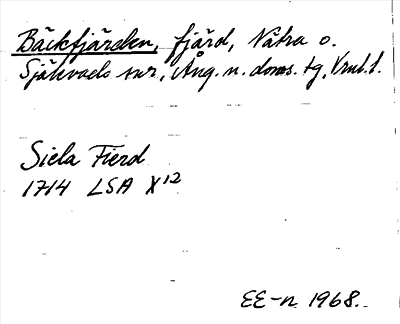 Bäckfjärden, fjärd, Nätra o.
Själevads snr, Ång. n. doms. tg, Vrnl. l.
Siela Fierd
1714 LSA X12
EE-n 1968.